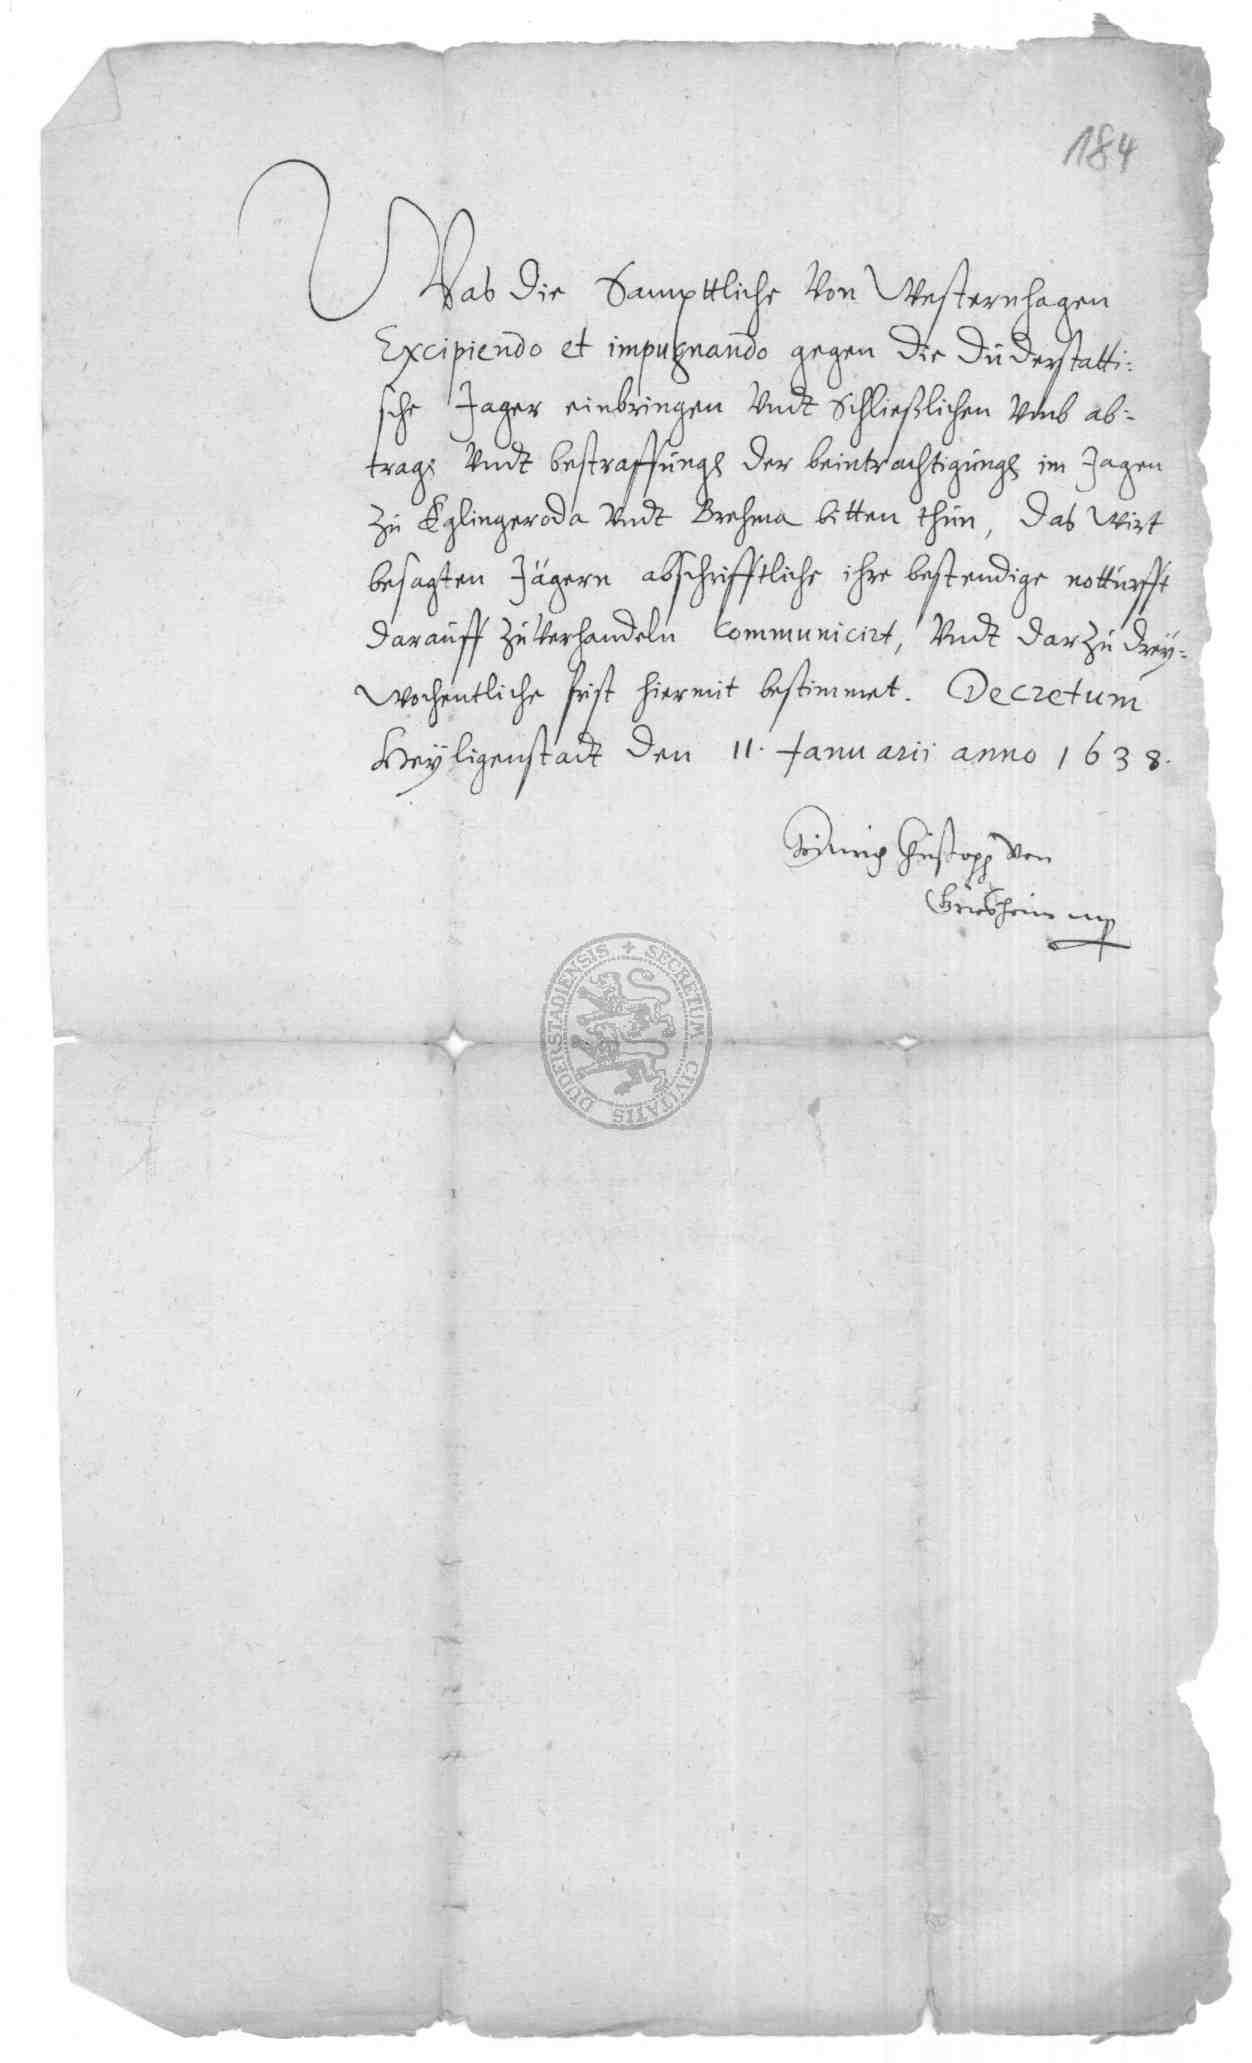 184
Was die Sampttliche Von Westernhagen
Excipiendo et impugnando gegen die Duderstatti-
sche Jager einbringen Vndt Schließlichen Vmb ab-
trag Vndt bestraffung der beintrachtigung im Jagen
zu Eglingeroda Vndt Brehma bitten thun, das Wirt
besagten Jägern abschrifftliche ihre bestendige notturfft
darauff zuVerhandeln Communicirt, Vndt darzu drey-
Wochentliche frist hiermit bestimmet. Decretum
Heyligenstadt den 11. Januarii anno 1638.
Heinrich Christoph von
Griesheim mp
SECRETUM CIVITATIS DUDERSTADIENSIS